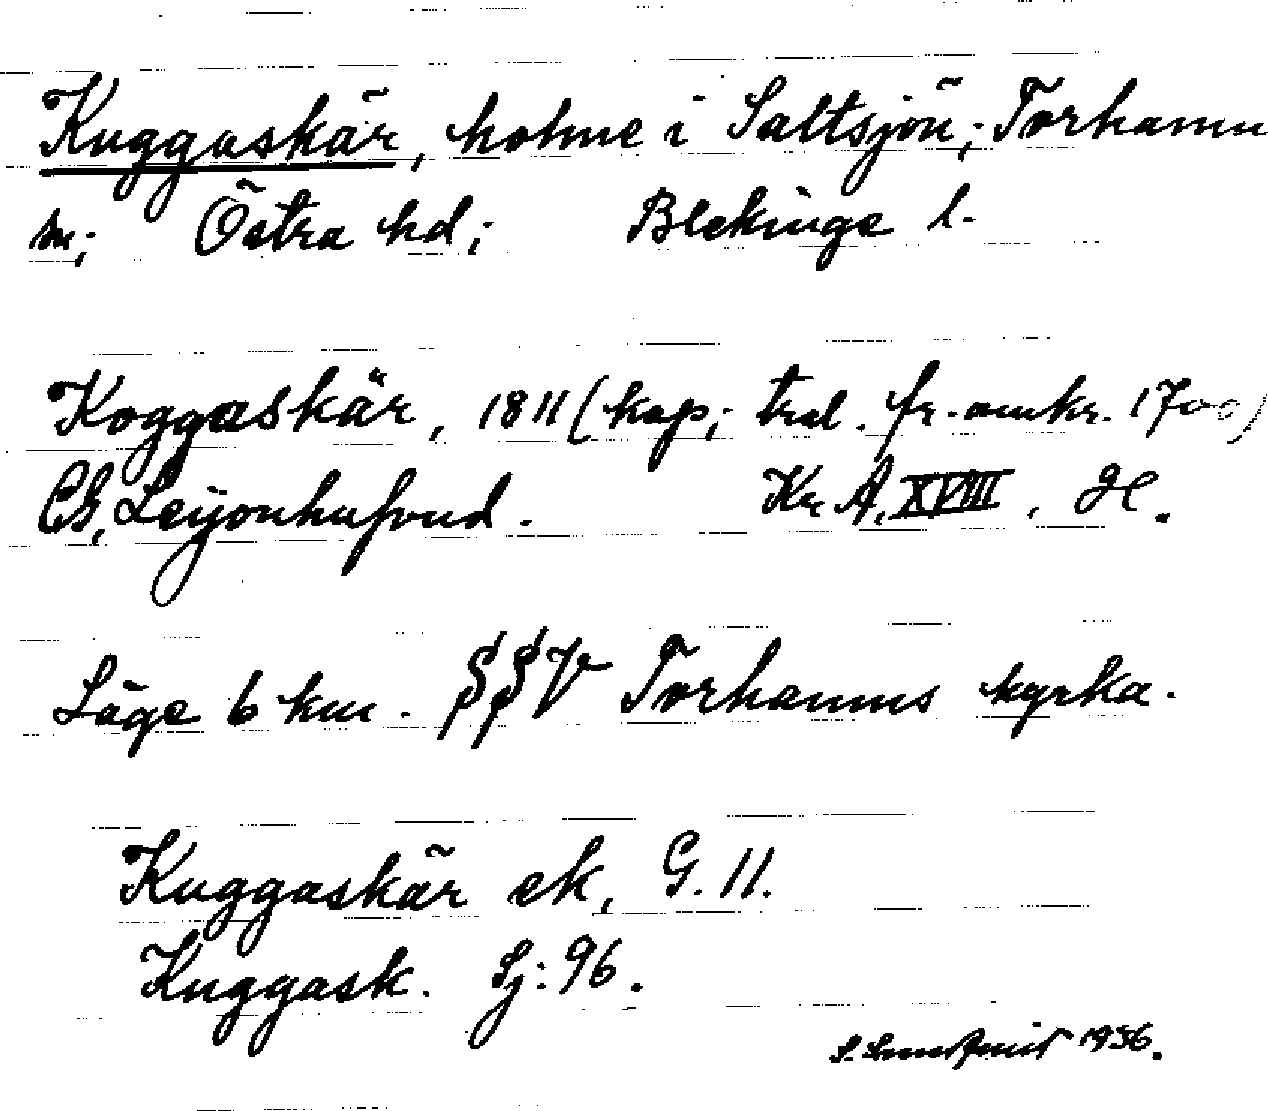 Kuggaskär, holme i Saltsjön; Torhamn
sn; Östra hd; Blekinge l.
Koggaskär, 1811 (kop; trol. fr. omkr. 1700)
Ch, Leijonhufvud. Kr. A, XVIII, H.
Läge 6 km. SSV Torhamns kyrka.
Kuggaskär ek, G. 11.
Kuggask. Sj: 96.
S. 1956.